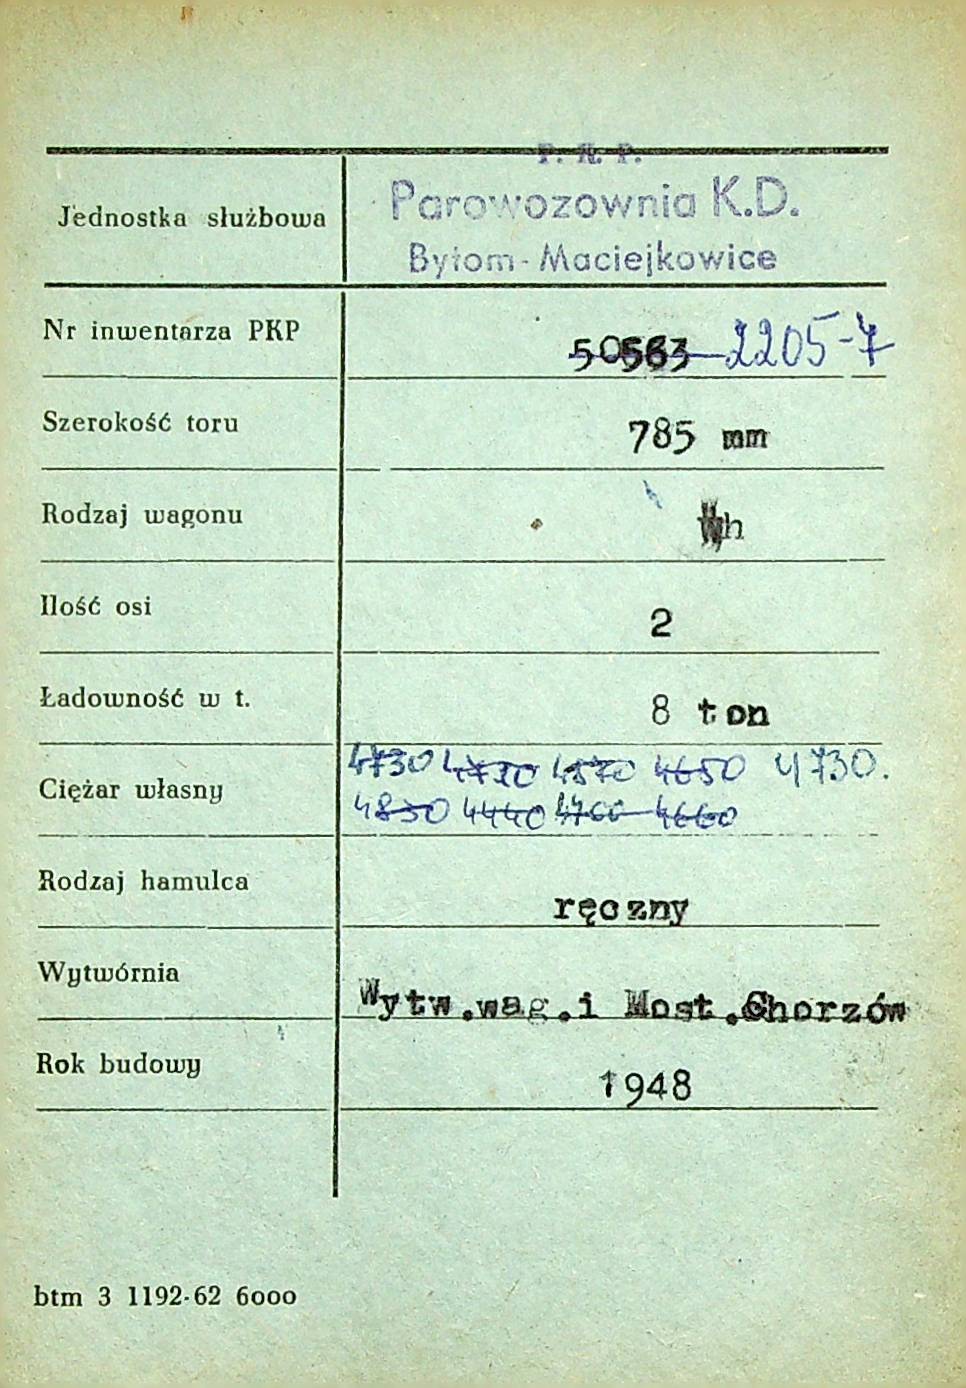 P. K. P.
Parowozownia K.D.
Jednostka służbowa
Bytom-Maciejkowice
Nr inwentarza PKP 50563 2205-7
Szerokość toru 785 mm
Rodzaj wagonu Wh
Ilość osi 2
Ładowność w t. 8 ton
4730 4720 4570 4650 4730.
Ciężar własny
4830 4440 4760 4660
Rodzaj hamulca ręczny
Wytwórnia Wytw.wag.i Most.Chorzów
Rok budowy 1948
btm 3 1192-62 6000